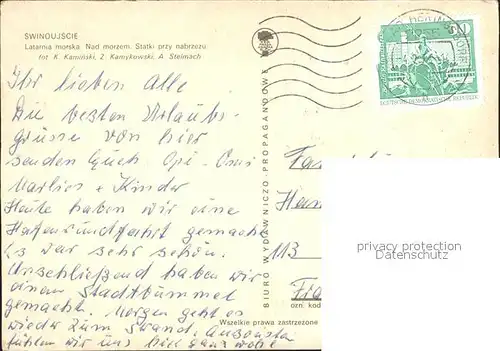 SWINOUJSCIE
Latarnia morska. Nad morzem. Statki przy nabrzeżu
fot. K. Kamiński, Z. Kamykowski, A. Stelmach
Ihr lieben Alle
Die besten Urlaubs-
grüsse von hier
senden Euch Opi - Omi
Marlies + Kinder
Heute haben wir eine
Hafenrundfahrt gemacht
Es war sehr schön.
Anschließend haben wir
einen Stadtbummel
gemacht. Morgen geht es
wieder zum Strand. Ansonsten
fühlen wir uns hier ganz wohl
BIURO WYDAWNICZO-PROPAGANDOWE
Wszelkie prawa zastrzeżone
DEUTSCHE DEMOKRATISCHE REPUBLIK
10
HERINGSDORF
Fam
113
ozn. kod
privacy protection
Datenschutz